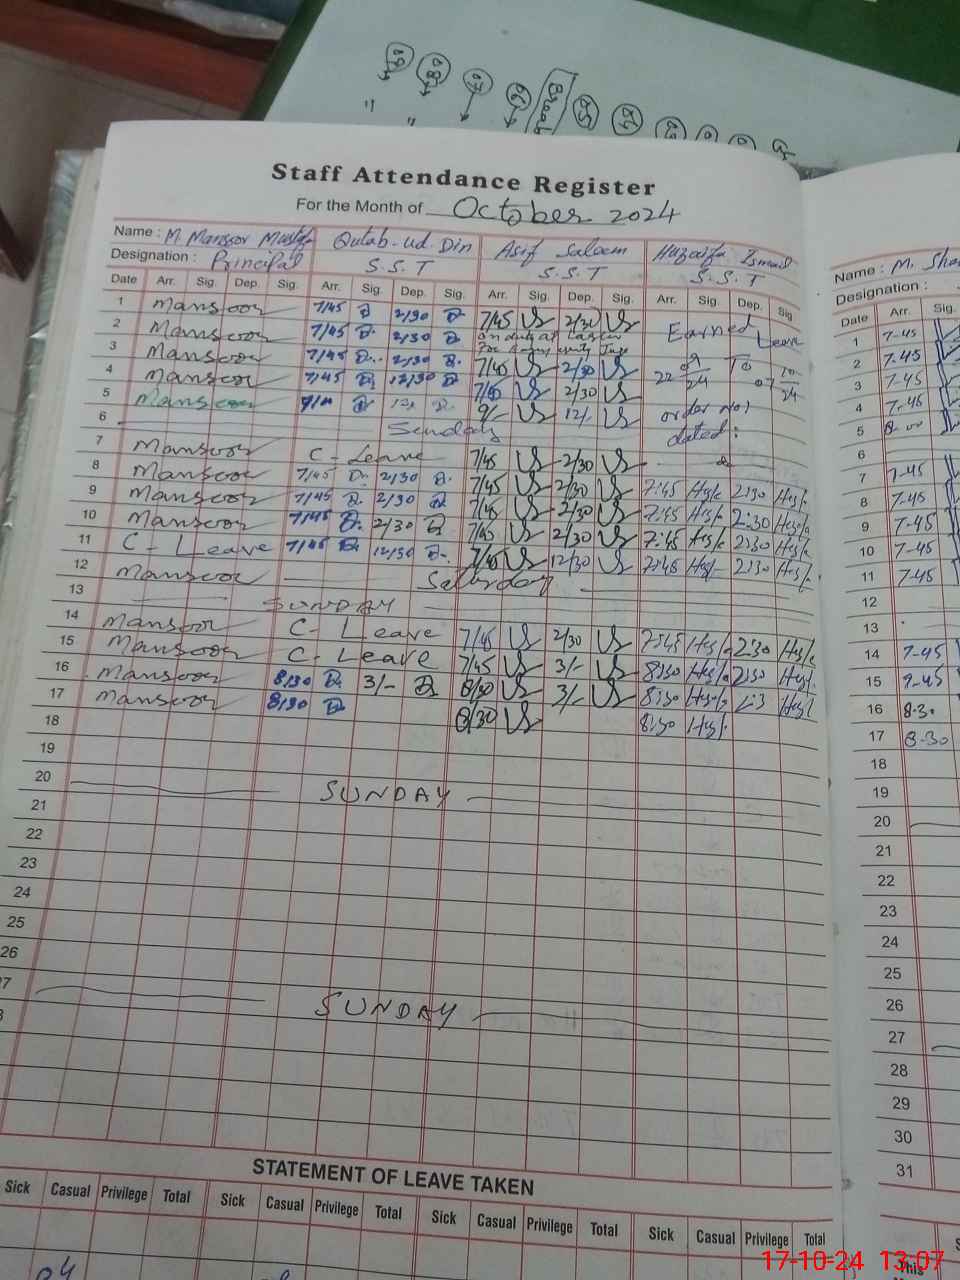 09
08
07
06
Break
05
04
Staff Attendance Register
For the Month of October 2024
Name : M. Manssor Qutab-ud-Din Asif Saleem Huzaifa Ismail
Designation : Principal S.S.T S.S.T S.S.T
Date Arr. Sig. Dep. Sig. Arr. Sig. Dep. Sig. Arr. Sig. Dep. Sig. Arr. Sig. Dep. Sig.
1 Mansoor 7/45 2/30 7/45 2/30 Earned Leave
2 Mansoor 7/45 2/30 on duty at
3 Mansoor 7/45 2/30 7/45 2/30 22 09/24 To 07 10/24
4 Mansoor 7/45 12/30 7/45 2/30 order No:
5 Mansoor 9/- 12/- dated:
6 Sunday
7 Mansoor C - Leave 7/45 2/30
8 Mansoor 7/45 2/30 7/45 2/30 7:45 2:30
9 Mansoor 7/45 2/30 7/45 2/30 7:45 2:30
10 Mansoor 7/45 2/30 7/45 2/30 7:45 2:30
11 C - Leave 7/45 12/30 7/45 12/30 7:45 2:30
12 Mansoor Saturday
13 SUNDAY
14 Mansoor C - Leave 7/45 2/30 7:45 2:30
15 Mansoor C - Leave 7/45 3/- 8:30 2:30
16 Mansoor 8/30 3/- 8/30 3/- 8:30
17 Mansoor 8/30 8/30 8:30
18
19
20 SUNDAY
21
22
23
24
25
26
27 SUNDAY
STATEMENT OF LEAVE TAKEN
Sick Casual Privilege Total Sick Casual Privilege Total Sick Casual Privilege Total Sick Casual Privilege Total
Name : M. Sha
Designation :
Date Arr. Sig.
1 7-45
2 7-45
3 7-45
4 7-45
5 8-00
6
7 7-45
8 7-45
9 7-45
10 7-45
11 7-45
12
13
14 7-45
15 7-45
16 8-30
17 8-30
18
19
20
21
22
23
24
25
26
27
28
29
30
31
This
17-10-24 13:07